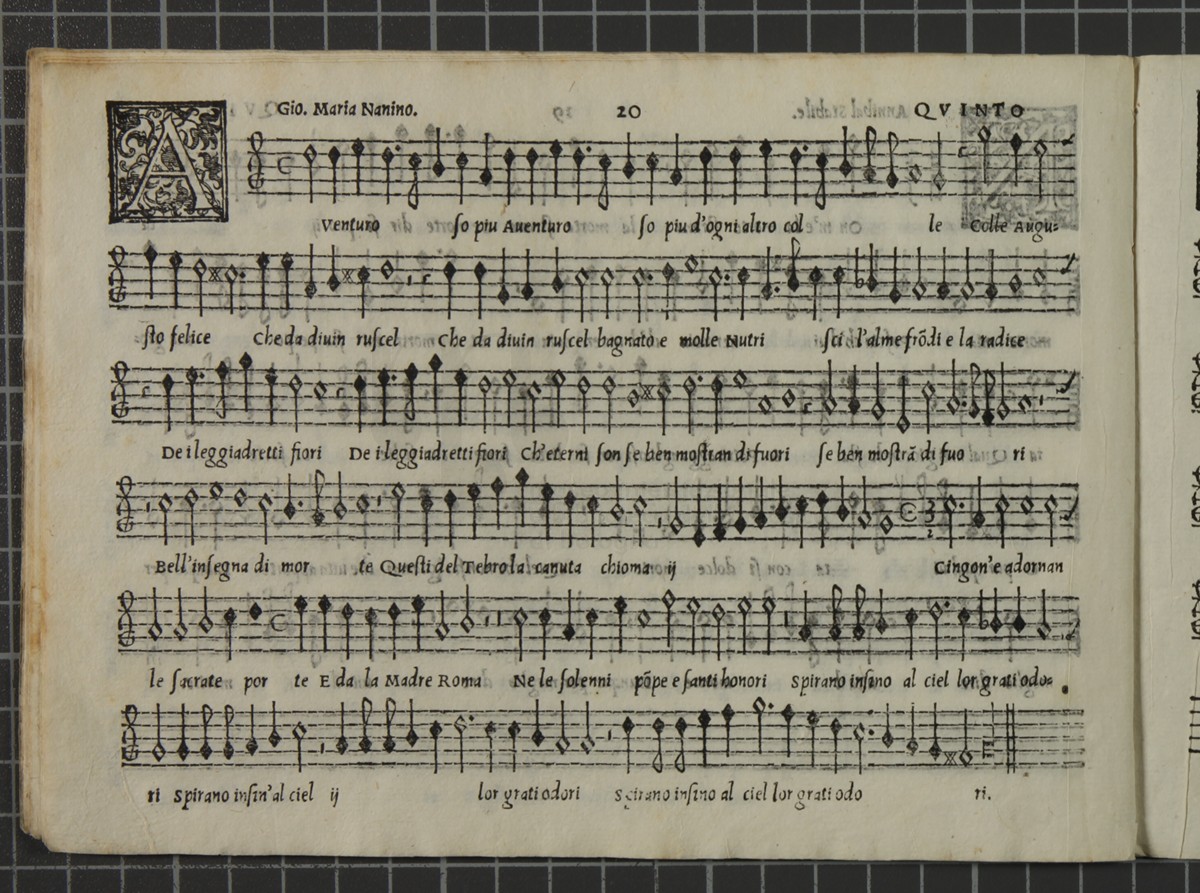 Gio. Maria Nanino. 20 QVINTO
A Venturo so piu Auenturo so piu d'ogni altro col le Colle Augu-
sto felice Che da diuin ruscel Che da diuin ruscel bagnato e molle Nutri sci l'alme frõdi e la radice
De i leggiadretti fiori De i leggiadretti fiori Ch'eterni son se ben mostran di fuori se ben mostrã di fuo ri
Bell'insegna di mor te Questi del Tebro la canuta chioma ij Cingon'e adornan
le sacrate por te E da la Madre Roma Ne le solenni põpe e santi honori Spirano insino al ciel lor grati odo-
ri Spirano insin'al ciel ij lor grati odori Spirano insino al ciel lor grati odo ri.